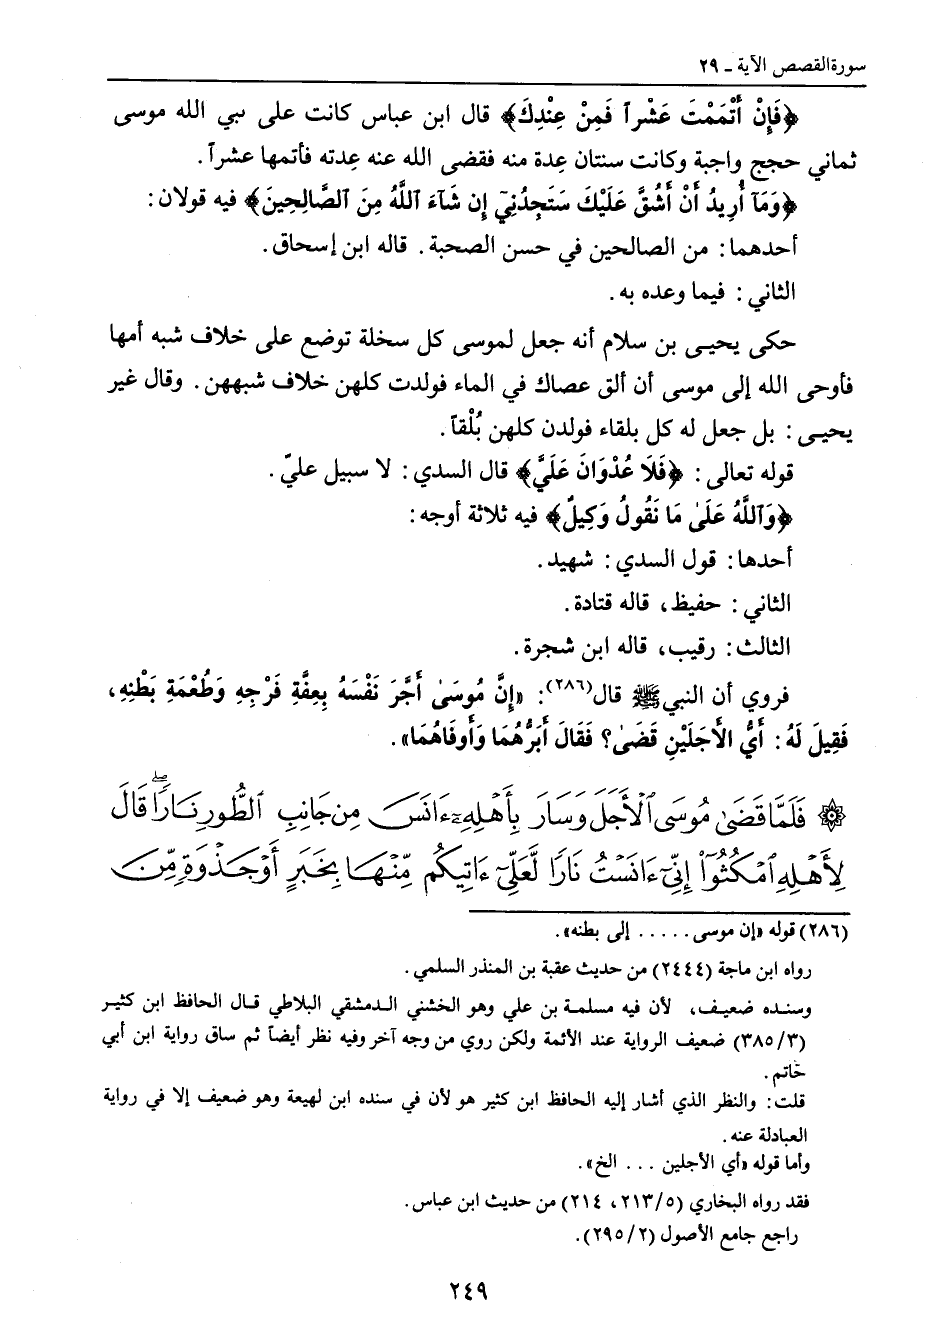 سورة القصص الآية ـ ٢٩
﴿فَإِنْ أَتْمَمْتَ عَشْراً فَمِنْ عِنْدِكَ﴾ قال ابن عباس كانت على نبي الله موسى
ثماني حجج واجبة وكانت سنتان عِدة منه فقضى الله عنه عِدته فأتمها عشراً.
﴿وَمَآ أُرِيدُ أَنْ أَشُقَّ عَلَيْكَ سَتَجِدُنِيٓ إِن شَآءَ ٱللَّهُ مِنَ ٱلصَّالِحِينَ﴾ فيه قولان:
أحدهما: من الصالحين في حسن الصحبة. قاله ابن إسحاق.
الثاني: فيما وعده به.
حكى يحيى بن سلام أنه جعل لموسى كل سخلة توضع على خلاف شبه أمها
فأوحى الله إلى موسى أن ألق عصاك في الماء فولدت كلهن خلاف شبههن. وقال غير
يحيى: بل جعل له كل بلقاء فولدن كلهن بُلْقاً.
قوله تعالى: ﴿فَلَا عُدْوَانَ عَلَيَّ﴾ قال السدي: لا سبيل عليّ.
﴿وَٱللَّهُ عَلَىٰ مَا نَقُولُ وَكِيلٌ﴾ فيه ثلاثة أوجه:
أحدها: قول السدي: شهيد.
الثاني: حفيظ، قاله قتادة.
الثالث: رقيب، قاله ابن شجرة.
فروي أن النبي ﷺ قال(٢٨٦): «إِنَّ مُوسَىٰ أَجَّرَ نَفْسَهُ بِعِفَّةِ فَرْجِهِ وَطُعْمَةِ بَطْنِهِ،
فَقِيلَ لَهُ: أَيُّ الأَجَلَيْنِ قَضَىٰ؟ فَقَالَ أَبَرُّهُمَا وَأَوفَاهُمَا».
۞ فَلَمَّا قَضَىٰ مُوسَى ٱلْأَجَلَ وَسَارَ بِأَهْلِهِۦٓ ءَانَسَ مِن جَانِبِ ٱلطُّورِ نَارًاۖ قَالَ
لِأَهْلِهِ ٱمْكُثُوٓاْ إِنِّىٓ ءَانَسْتُ نَارًا لَّعَلِّىٓ ءَاتِيكُم مِّنْهَا بِخَبَرٍ أَوْ جَذْوَةٍ مِّنَ
(٢٨٦) قوله «إن موسى..... إلى بطنه».
رواه ابن ماجة (٢٤٤٤) من حديث عقبة بن المنذر السلمي.
وسنده ضعيف، لأن فيه مسلمة بن علي وهو الخشني الدمشقي البلاطي قال الحافظ ابن كثير
(٣/ ٣٨٥) ضعيف الرواية عند الأئمة ولكن روي من وجه آخر وفيه نظر أيضاً ثم ساق رواية ابن أبي
حاتم.
قلت: والنظر الذي أشار إليه الحافظ ابن كثير هو لأن في سنده ابن لهيعة وهو ضعيف إلا في رواية
العبادلة عنه.
وأما قوله «أي الأجلين ... الخ».
فقد رواه البخاري (٥/ ٢١٣، ٢١٤) من حديث ابن عباس.
راجع جامع الأصول (٢/ ٢٩٥).
٢٤٩